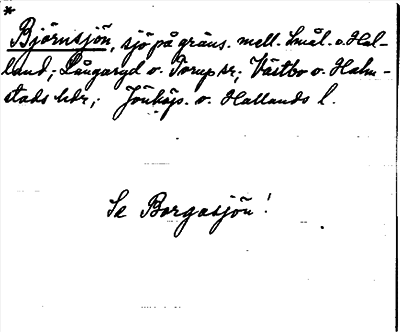 *
Björnsjön, sjö på gräns. mell. Smål. o. Hal-
land; Långaryd o. Torup sr; Västbo o. Halm-
stads hdr; Jönköps. o. Hallands l.
Se Borgasjön!